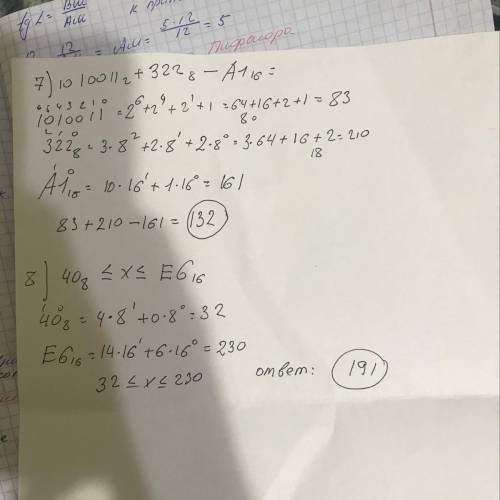 tg L = BM/AM
AM = 5·12/12 = 5
Пифагора
7) 1010011₂ + 322₈ − A1₁₆ =
6 5 4 3 2 1 0
1010011 = 2⁶ + 2⁴ + 2¹ + 1 = 64 + 16 + 2 + 1 = 83
80
2 1 0
322₈ = 3·8² + 2·8¹ + 2·8⁰ = 3·64 + 16 + 2 = 210
18
1 0
A1₁₆ = 10·16¹ + 1·16⁰ = 161
83 + 210 − 161 = 132
8) 40₈ ≤ x ≤ E6₁₆
1 0
40₈ = 4·8¹ + 0·8⁰ = 32
E6₁₆ = 14·16¹ + 6·16⁰ = 230
32 ≤ x ≤ 230
ответ: 191